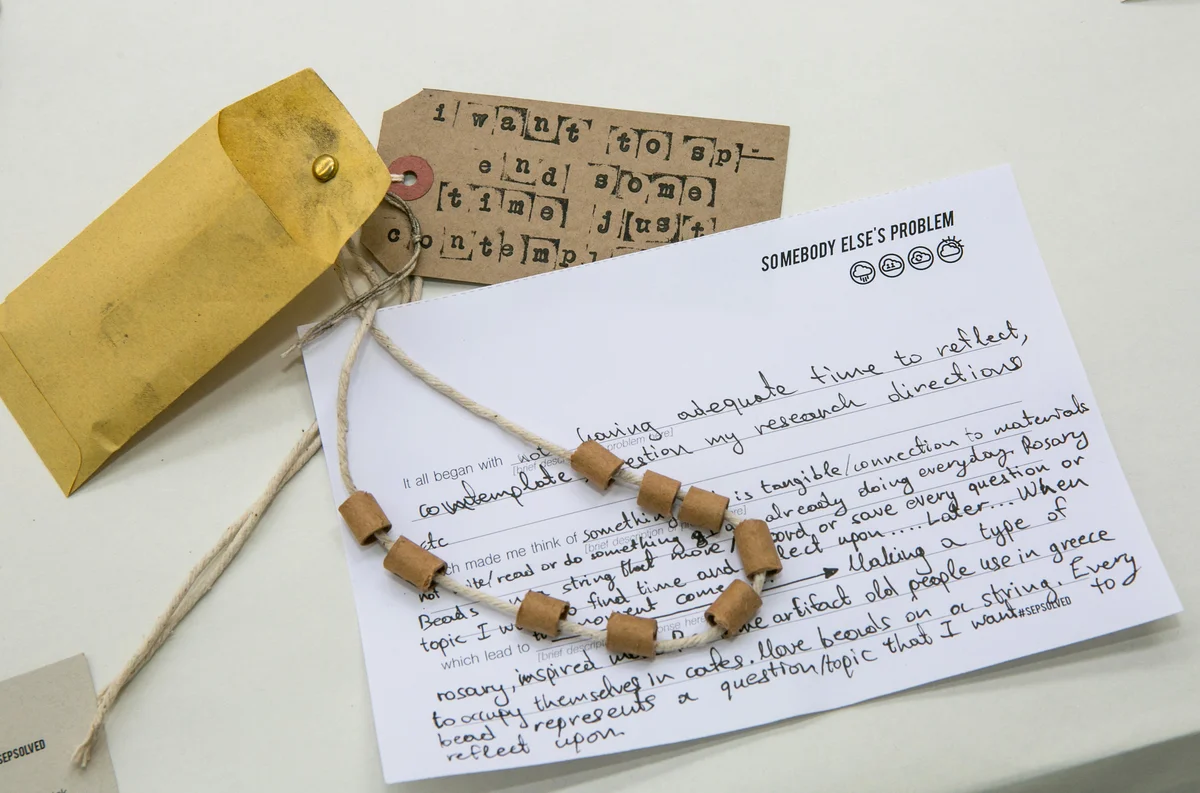 i want to sp-
end some
time just
contemp
SOMEBODY ELSE'S PROBLEM
It all began with not having adequate time to reflect,
[brief problem here]
contemplate my research directions
etc
made me think of something is tangible/connection to materials
[brief description
/read or do something already doing everyday. Rosary
Beads string that move or save every question or
topic I to find time and upon.... Later... When
moment Making a type of
which lead to
[brief
rosary, inspired artifact old people use in greece
to occupy themselves in cafes. Move beads on a string. Every
#SEPSOLVED
bead represents a question/topic that I want to
reflect upon.
SEPSOLVED